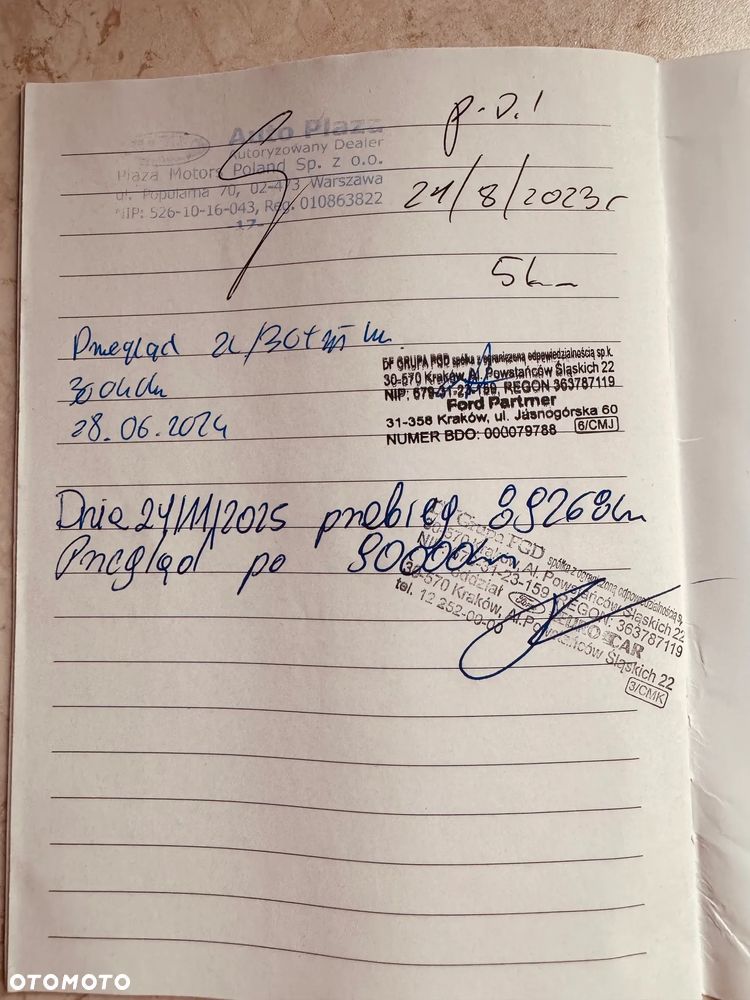 Auto Plaza
Autoryzowany Dealer
Plaza Motors Poland Sp. z o.o.
ul. Popularna 70, 02-473 Warszawa
NIP: 526-10-16-043, Reg. 010863822
-17-
P.D.I
24/8/2023r
5km
Przegląd
28.06.2024
DF GRUPA PGD spółka z ograniczoną odpowiedzialnością sp.k.
30-570 Kraków, Al. Powstańców Śląskich 22
NIP: 679-31-23-159, REGON 363787119
Ford Partner
31-358 Kraków, ul. Jasnogórska 60
NUMER BDO: 000079788 6/CMJ
Dnia 24/11/2025 przebieg 89268km
Przegląd po 90000km
Grupa PGD spółka z ograniczoną odpowiedzialnością
30-570 Kraków, Al. Powstańców Śląskich 22
31-23-159, REGON: 363787119
oddział Ford EURO CAR
30-570 Kraków, Al. Powstańców Śląskich 22
tel. 12 252-00-00 3/CMK
OTOMOTO